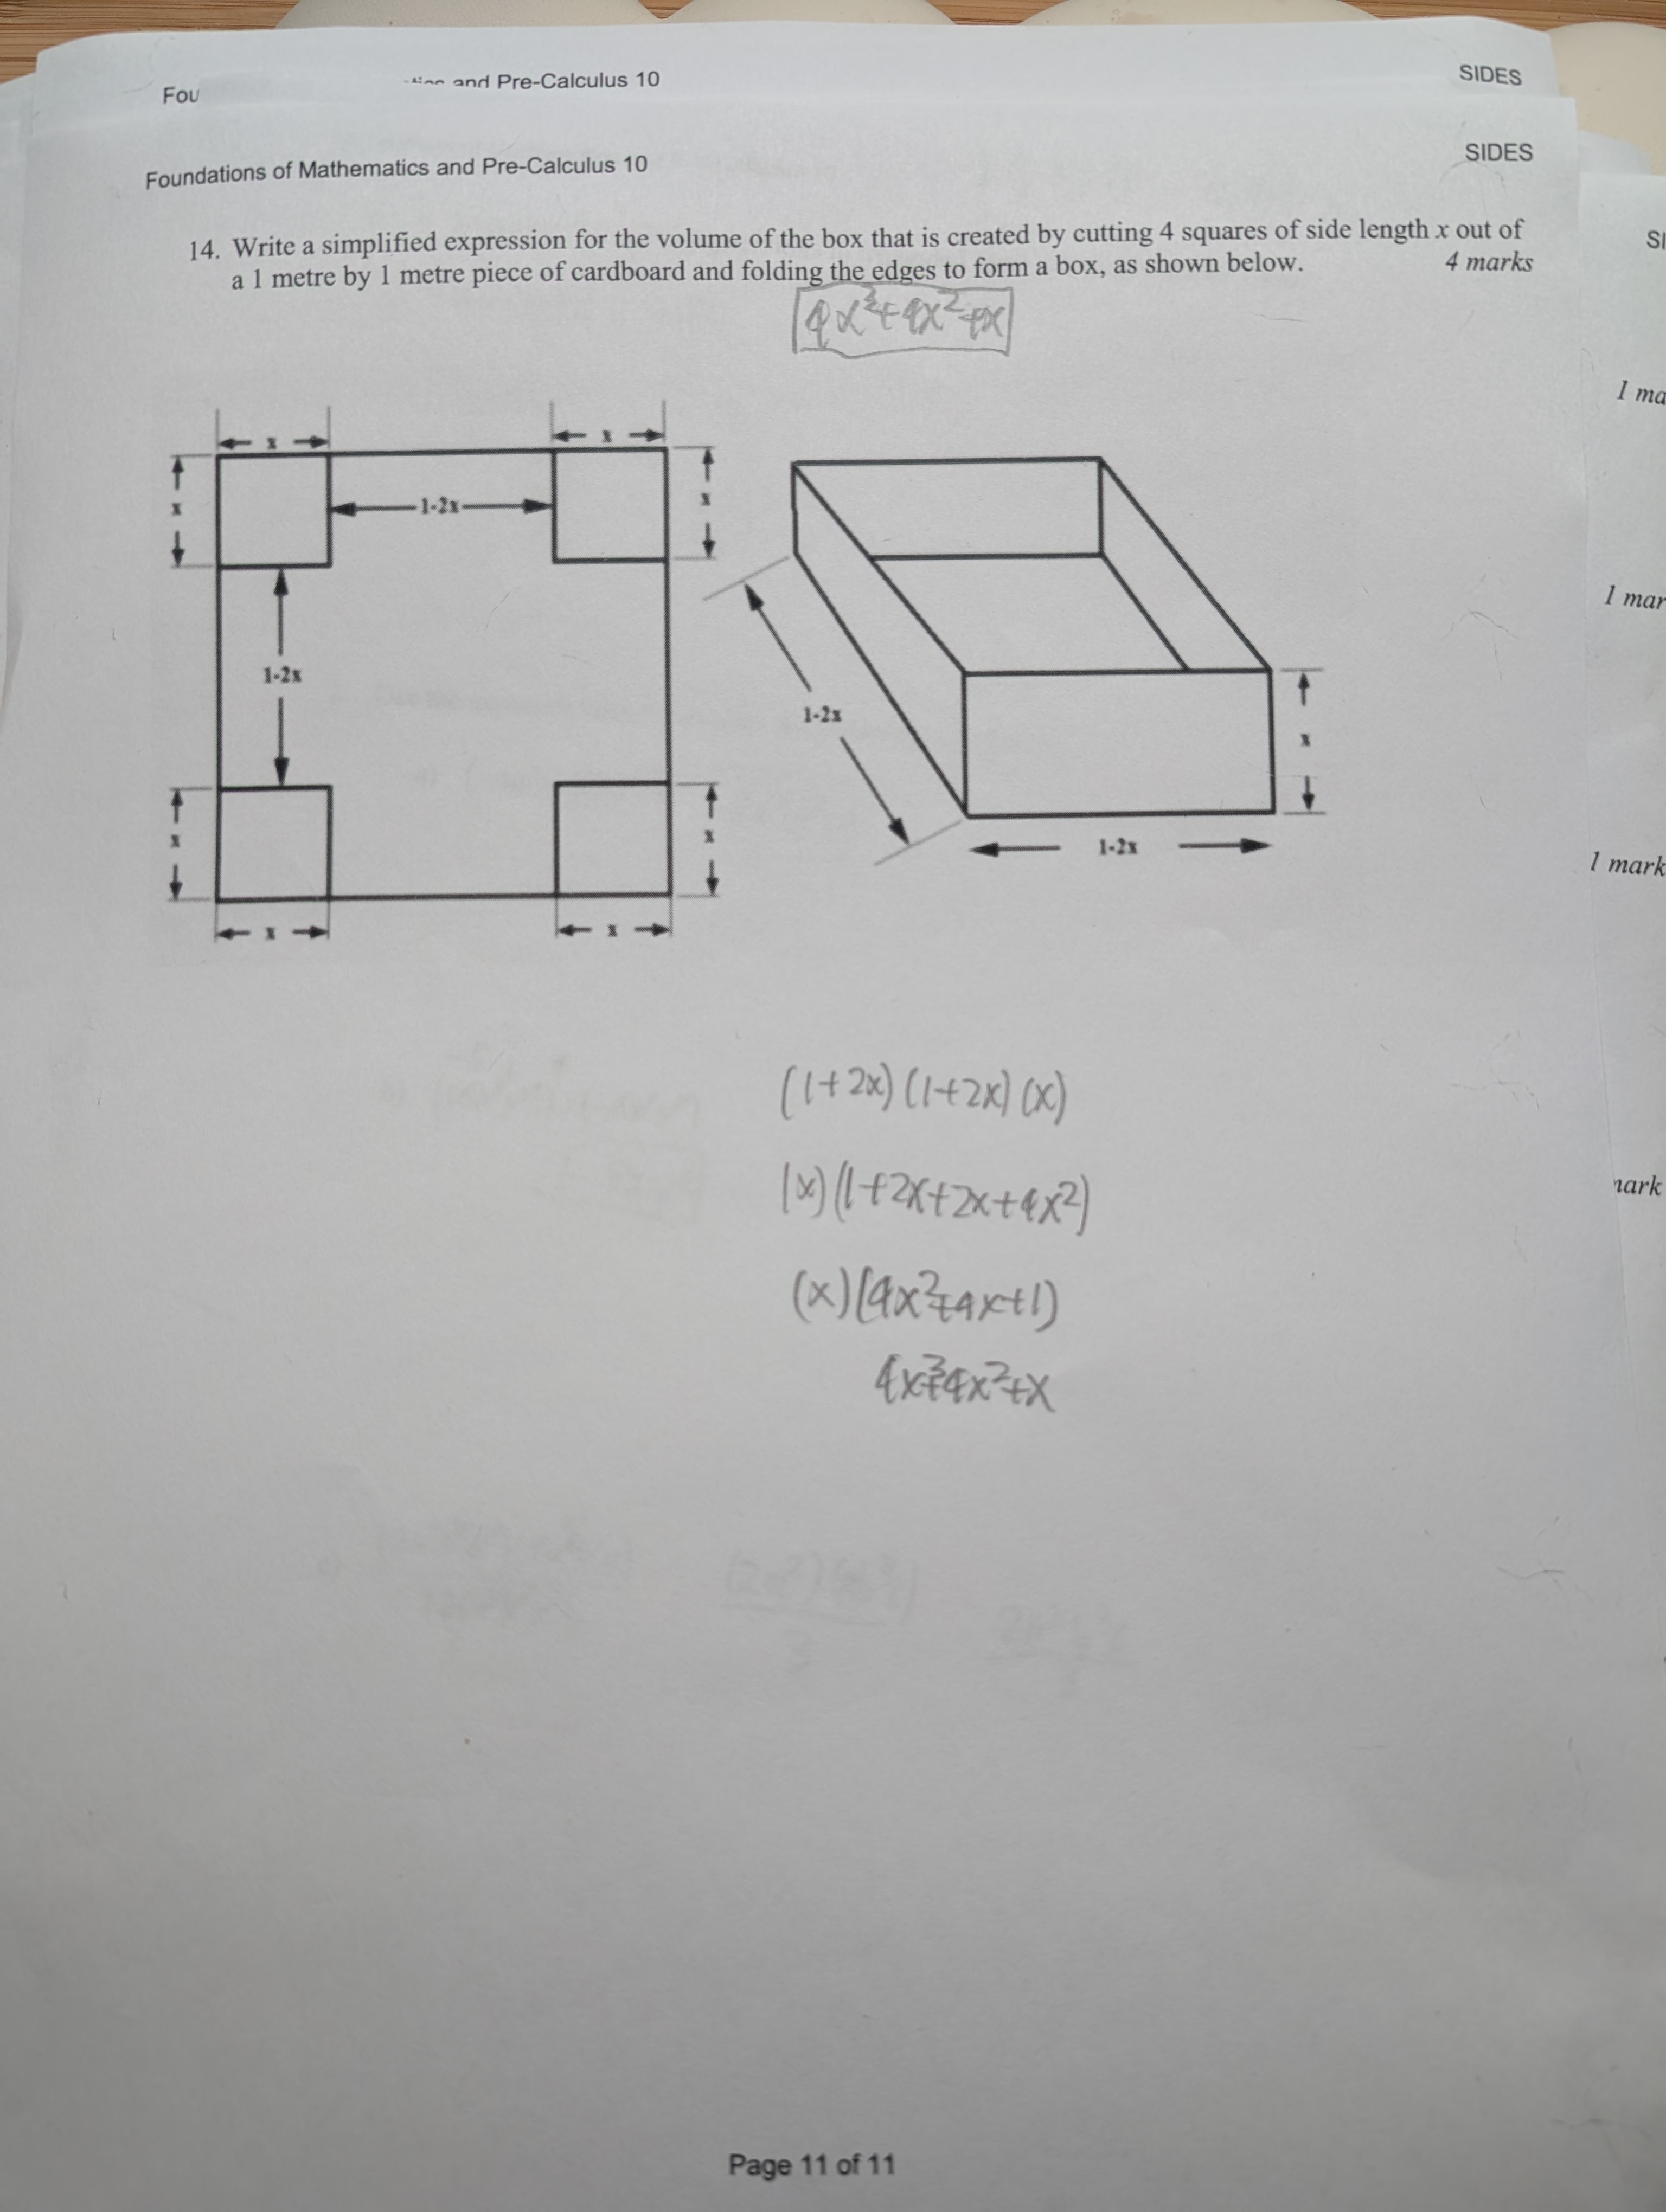 Fou and Pre-Calculus 10 SIDES
Foundations of Mathematics and Pre-Calculus 10 SIDES
14. Write a simplified expression for the volume of the box that is created by cutting 4 squares of side length x out of
a 1 metre by 1 metre piece of cardboard and folding the edges to form a box, as shown below. 4 marks
4x³+4x²+x
SI
1 ma
x x
x 1-2x x
1 mar
1-2x
1-2x x
x x 1-2x
1 mark
x x
(1+2x)(1+2x)(x)
(x)(1+2x+2x+4x²)
mark
(x)(4x²+4x+1)
4x³+4x²+x
Page 11 of 11